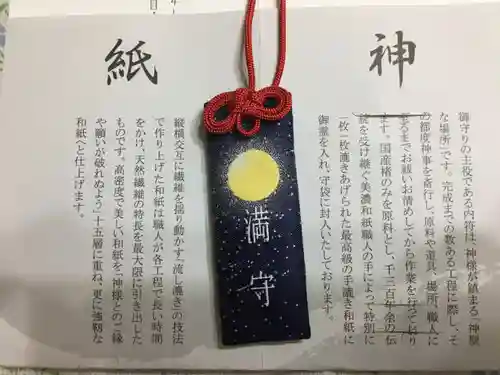 神
紙
御守りの主役である内符は、神様が鎮まる「神聖
な場所」です。完成までの数ある工程に際し、そ
の都度神事を斎行し、原料や道具、場所、職人に
至るまでお祓いお清めしてから作業を行っており
ます。国産楮のみを原料とし、千三百年余の伝
統を受け継ぐ美濃和紙職人の手によって特別に
一枚一枚漉きあげられた最高級の手漉き和紙に
御霊を入れ、守袋に封入いたしております。
満守
縦横交互に繊維を揺り動かす「流し漉き」の技法
で作り上げた和紙は職人が各工程で長い時間
をかけ、天然繊維の特長を最大限に引き出した
ものです。高密度で美しい和紙を「神様とのご縁
や願いが破れぬよう」十五層に重ね、更に強靭な
和紙へと仕上げます。